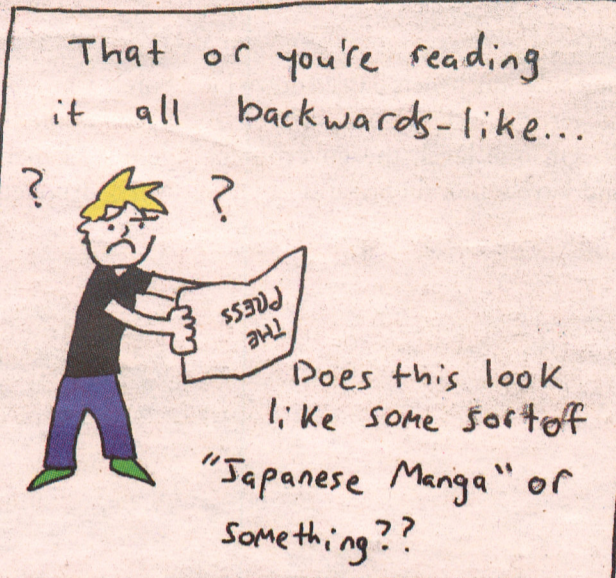 That or you're reading
it all backwards-like...
? ?
THE
PRESS
Does this look
like some sortoff
"Japanese Manga" or
something??